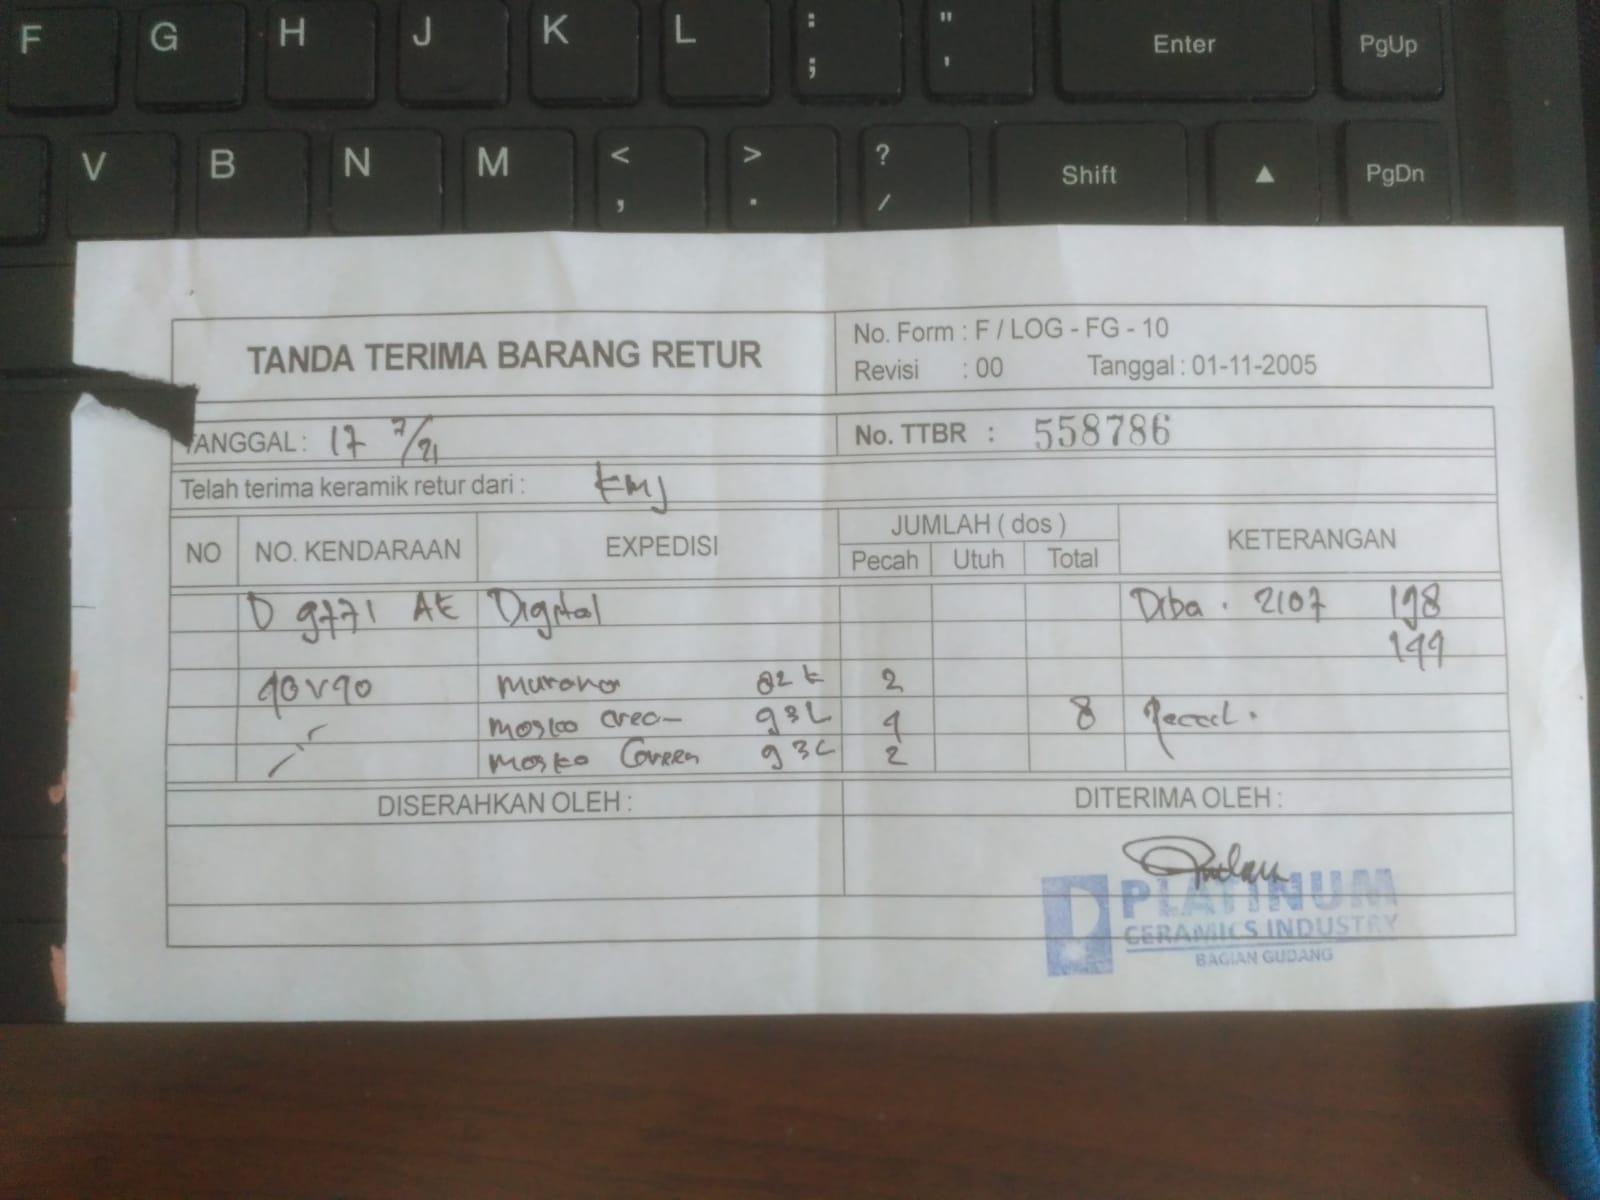 F G H J K L : ; " ' Enter PgUp
V B N M < , > . ? / Shift ▲ PgDn
TANDA TERIMA BARANG RETUR
No. Form : F / LOG - FG - 10
Revisi : 00 Tanggal : 01-11-2005
TANGGAL : 17 7/21
No. TTBR : 558786
Telah terima keramik retur dari : KMJ
NO NO. KENDARAAN EXPEDISI JUMLAH ( dos ) KETERANGAN
Pecah Utuh Total
D 9771 AE Digital 2107 198
199
40 x 40 Murano 2
Mosko 4 8
Mosko 2
DISERAHKAN OLEH : DITERIMA OLEH :
PLATINUM
CERAMICS INDUSTRY
BAGIAN GUDANG